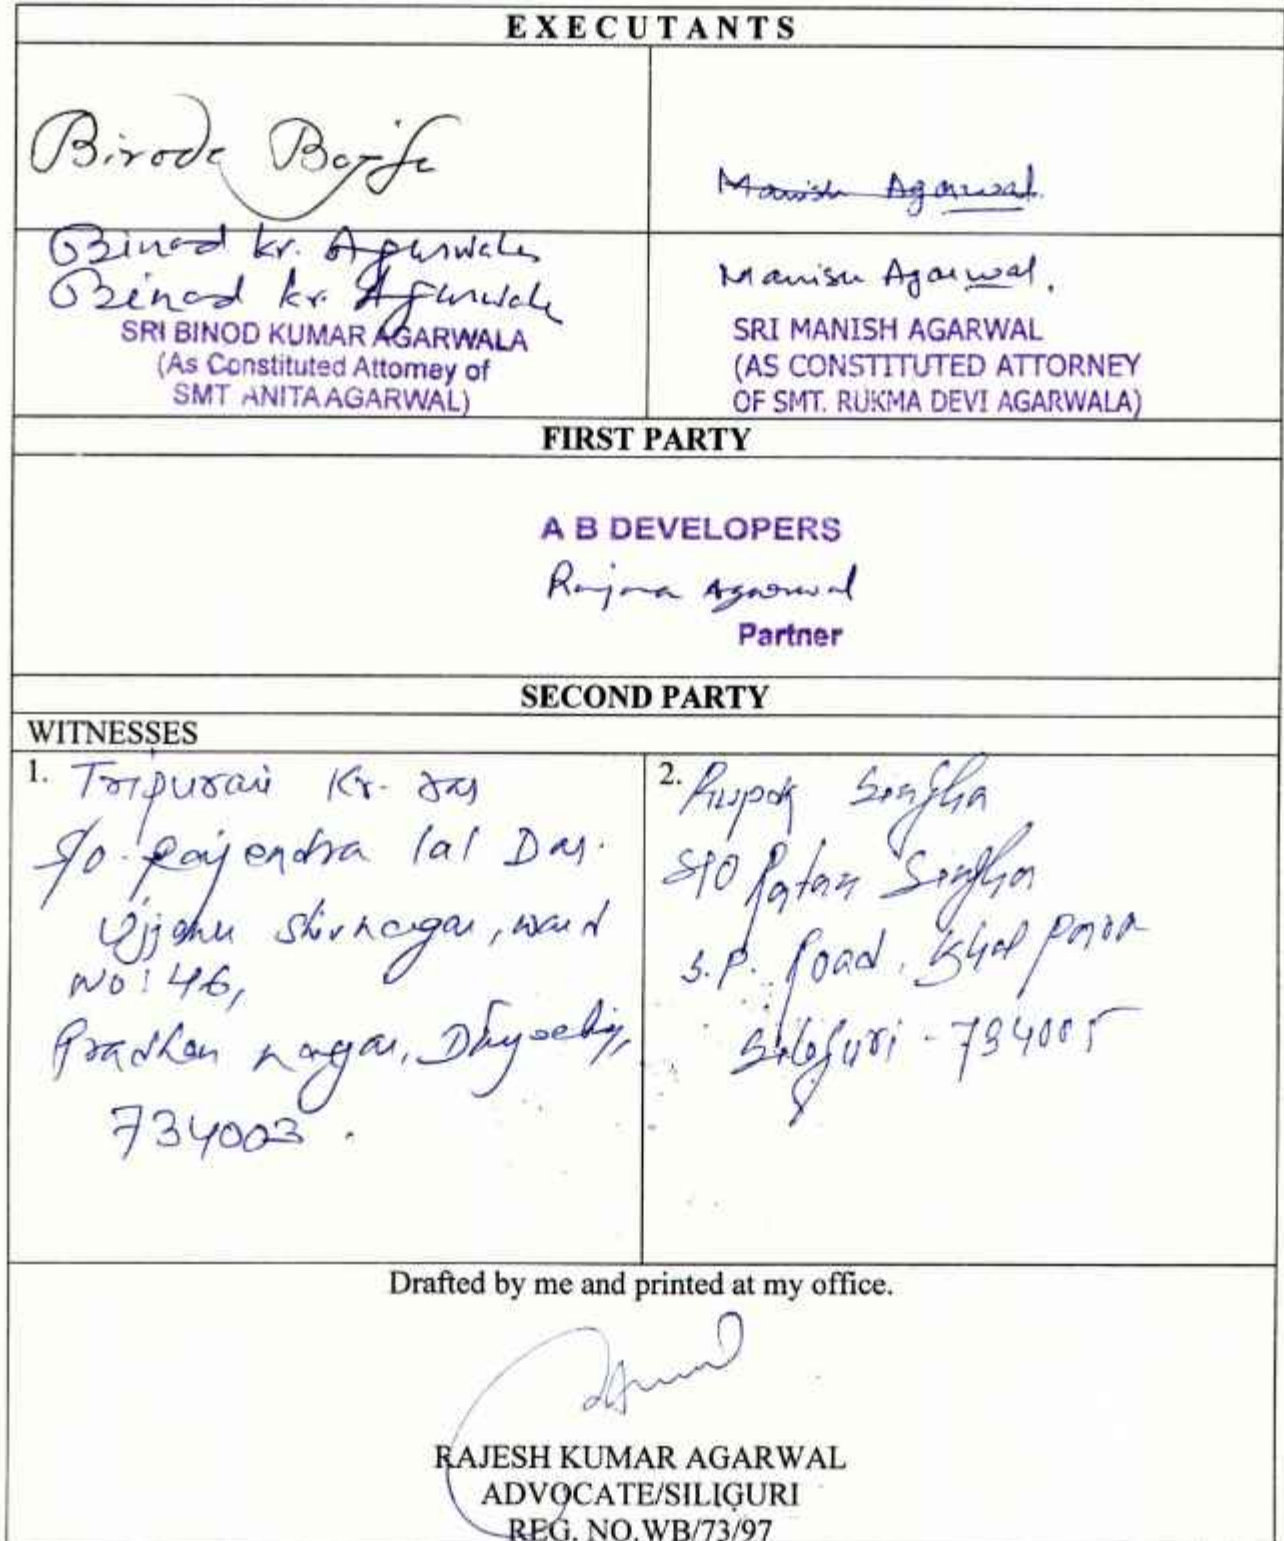 EXECUTANTS
Manish Agarwal.
Binod kr. Agarwala
Binod kr. Agarwala
SRI BINOD KUMAR AGARWALA
(As Constituted Attorney of
SMT ANITA AGARWAL)
Manish Agarwal.
SRI MANISH AGARWAL
(AS CONSTITUTED ATTORNEY
OF SMT. RUKMA DEVI AGARWALA)
FIRST PARTY
A B DEVELOPERS
Ranjana Agarwal
Partner
SECOND PARTY
WITNESSES
1. Tripurari Kr. Das
S/o. Rajendra lal Das.
shivnagar, ward
No: 46,
Pradhan nagar,
734003.
2. Rupok Singha
S/O Ratan Singha
S.P. Road, Khal para
Siliguri - 734005
Drafted by me and printed at my office.
RAJESH KUMAR AGARWAL
ADVOCATE/SILIGURI
REG. NO.WB/73/97